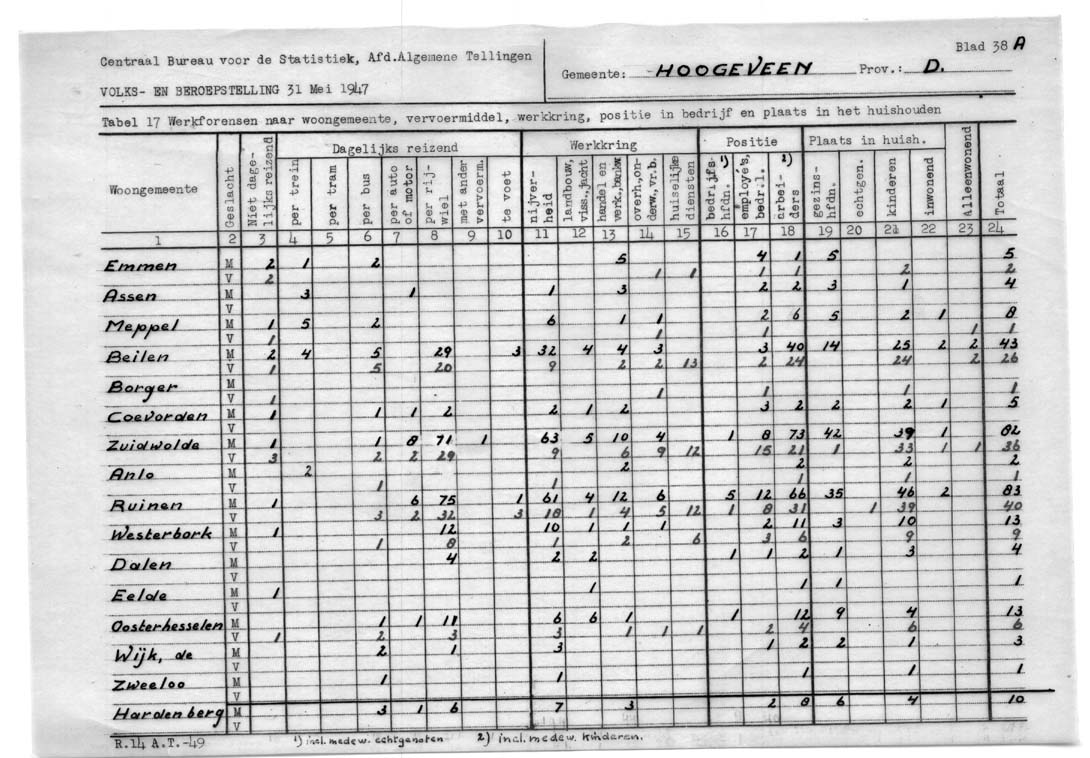 Centraal Bureau voor de Statistiek, Afd.Algemene Tellingen
VOLKS- EN BEROEPSTELLING 31 Mei 1947
Gemeente: HOOGEVEEN Prov.: D.
Blad 38 A
Tabel 17 Werkforensen naar woongemeente, vervoermiddel, werkkring, positie in bedrijf en plaats in het huishouden
Woongemeente | Geslacht | Niet dage-lijks reizend | Dagelijks reizend | Werkkring | Positie | Plaats in huish. | Alleenwonend | Totaal
per trein | per tram | per bus | per auto of motor | per rij-wiel | met ander vervoerm. | te voet | nijver-heid | landbouw, viss.,jacht | handel en verk.,bankw | overh.,on-derw.,vr.b. | huiselijke diensten | bedrijfs-hfdn. 1) | employé's, bedr.l. | arbei-ders 2) | gezins-hfdn. | echtgen. | kinderen | inwonend
1 2 3 4 5 6 7 8 9 10 11 12 13 14 15 16 17 18 19 20 21 22 23 24
Emmen M 2 1 2 5 4 1 5 5
V 2 1 1 1 1 2 2
Assen M 3 1 1 3 2 2 3 1 4
V
Meppel M 1 5 2 6 1 1 2 6 5 2 1 8
V 1 1 1 1 1
Beilen M 2 4 5 29 3 32 4 4 3 3 40 14 25 2 2 43
V 1 5 20 9 2 2 13 2 24 24 2 26
Borger M
V 1 1 1 1 1
Coevorden M 1 1 1 2 2 1 2 3 2 2 2 1 5
V
Zuidwolde M 1 1 8 71 1 63 5 10 4 1 8 73 42 39 1 82
V 3 2 2 29 9 6 9 12 15 21 1 33 1 1 36
Anlo M 2 2 2 2 2
V 1 1 1 1 1
Ruinen M 1 6 75 1 61 4 12 6 5 12 66 35 46 2 83
V 3 2 32 3 18 1 4 5 12 1 8 31 1 39 40
Westerbork M 1 12 10 1 1 1 2 11 3 10 13
V 1 8 1 2 6 3 6 9 9
Dalen M 4 2 2 1 1 2 1 3 4
V
Eelde M 1 1 1 1 1
V
Oosterhesselen M 1 1 11 6 6 1 1 12 9 4 13
V 1 2 3 3 1 1 1 2 4 6 6
Wijk, de M 2 1 3 1 2 2 1 3
V
Zweeloo M 1 1 1 1 1
V
Hardenberg M 3 1 6 7 3 2 8 6 4 10
V
R.14 A.T.-49 1) incl. medew. echtgenoten 2) incl. medew. kinderen.